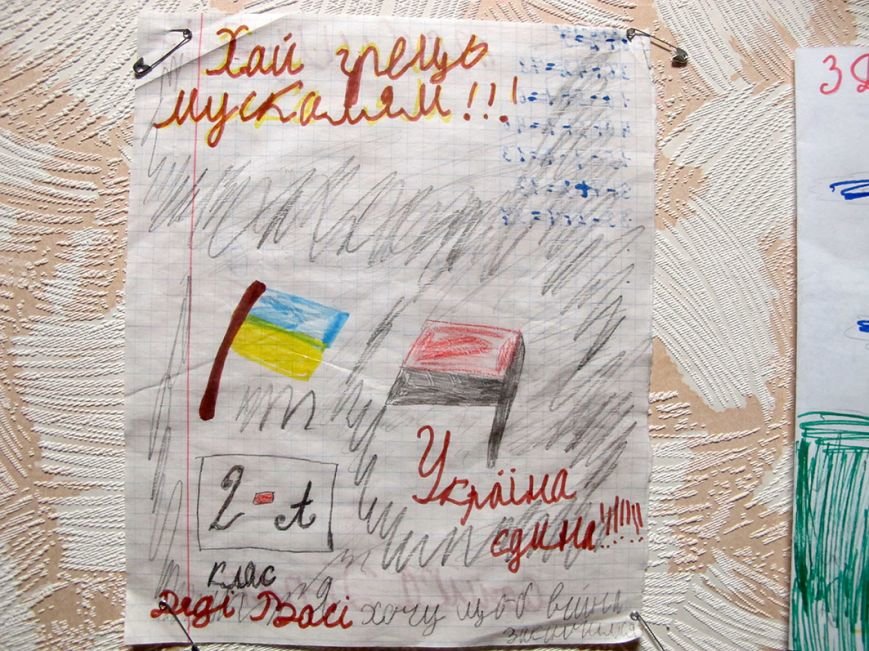 Хай грець
мускалям!!!
Україна
єдина!!!!!!!
2-А
клас
Дяді Васі хочу щоб війна
закінчилася
З